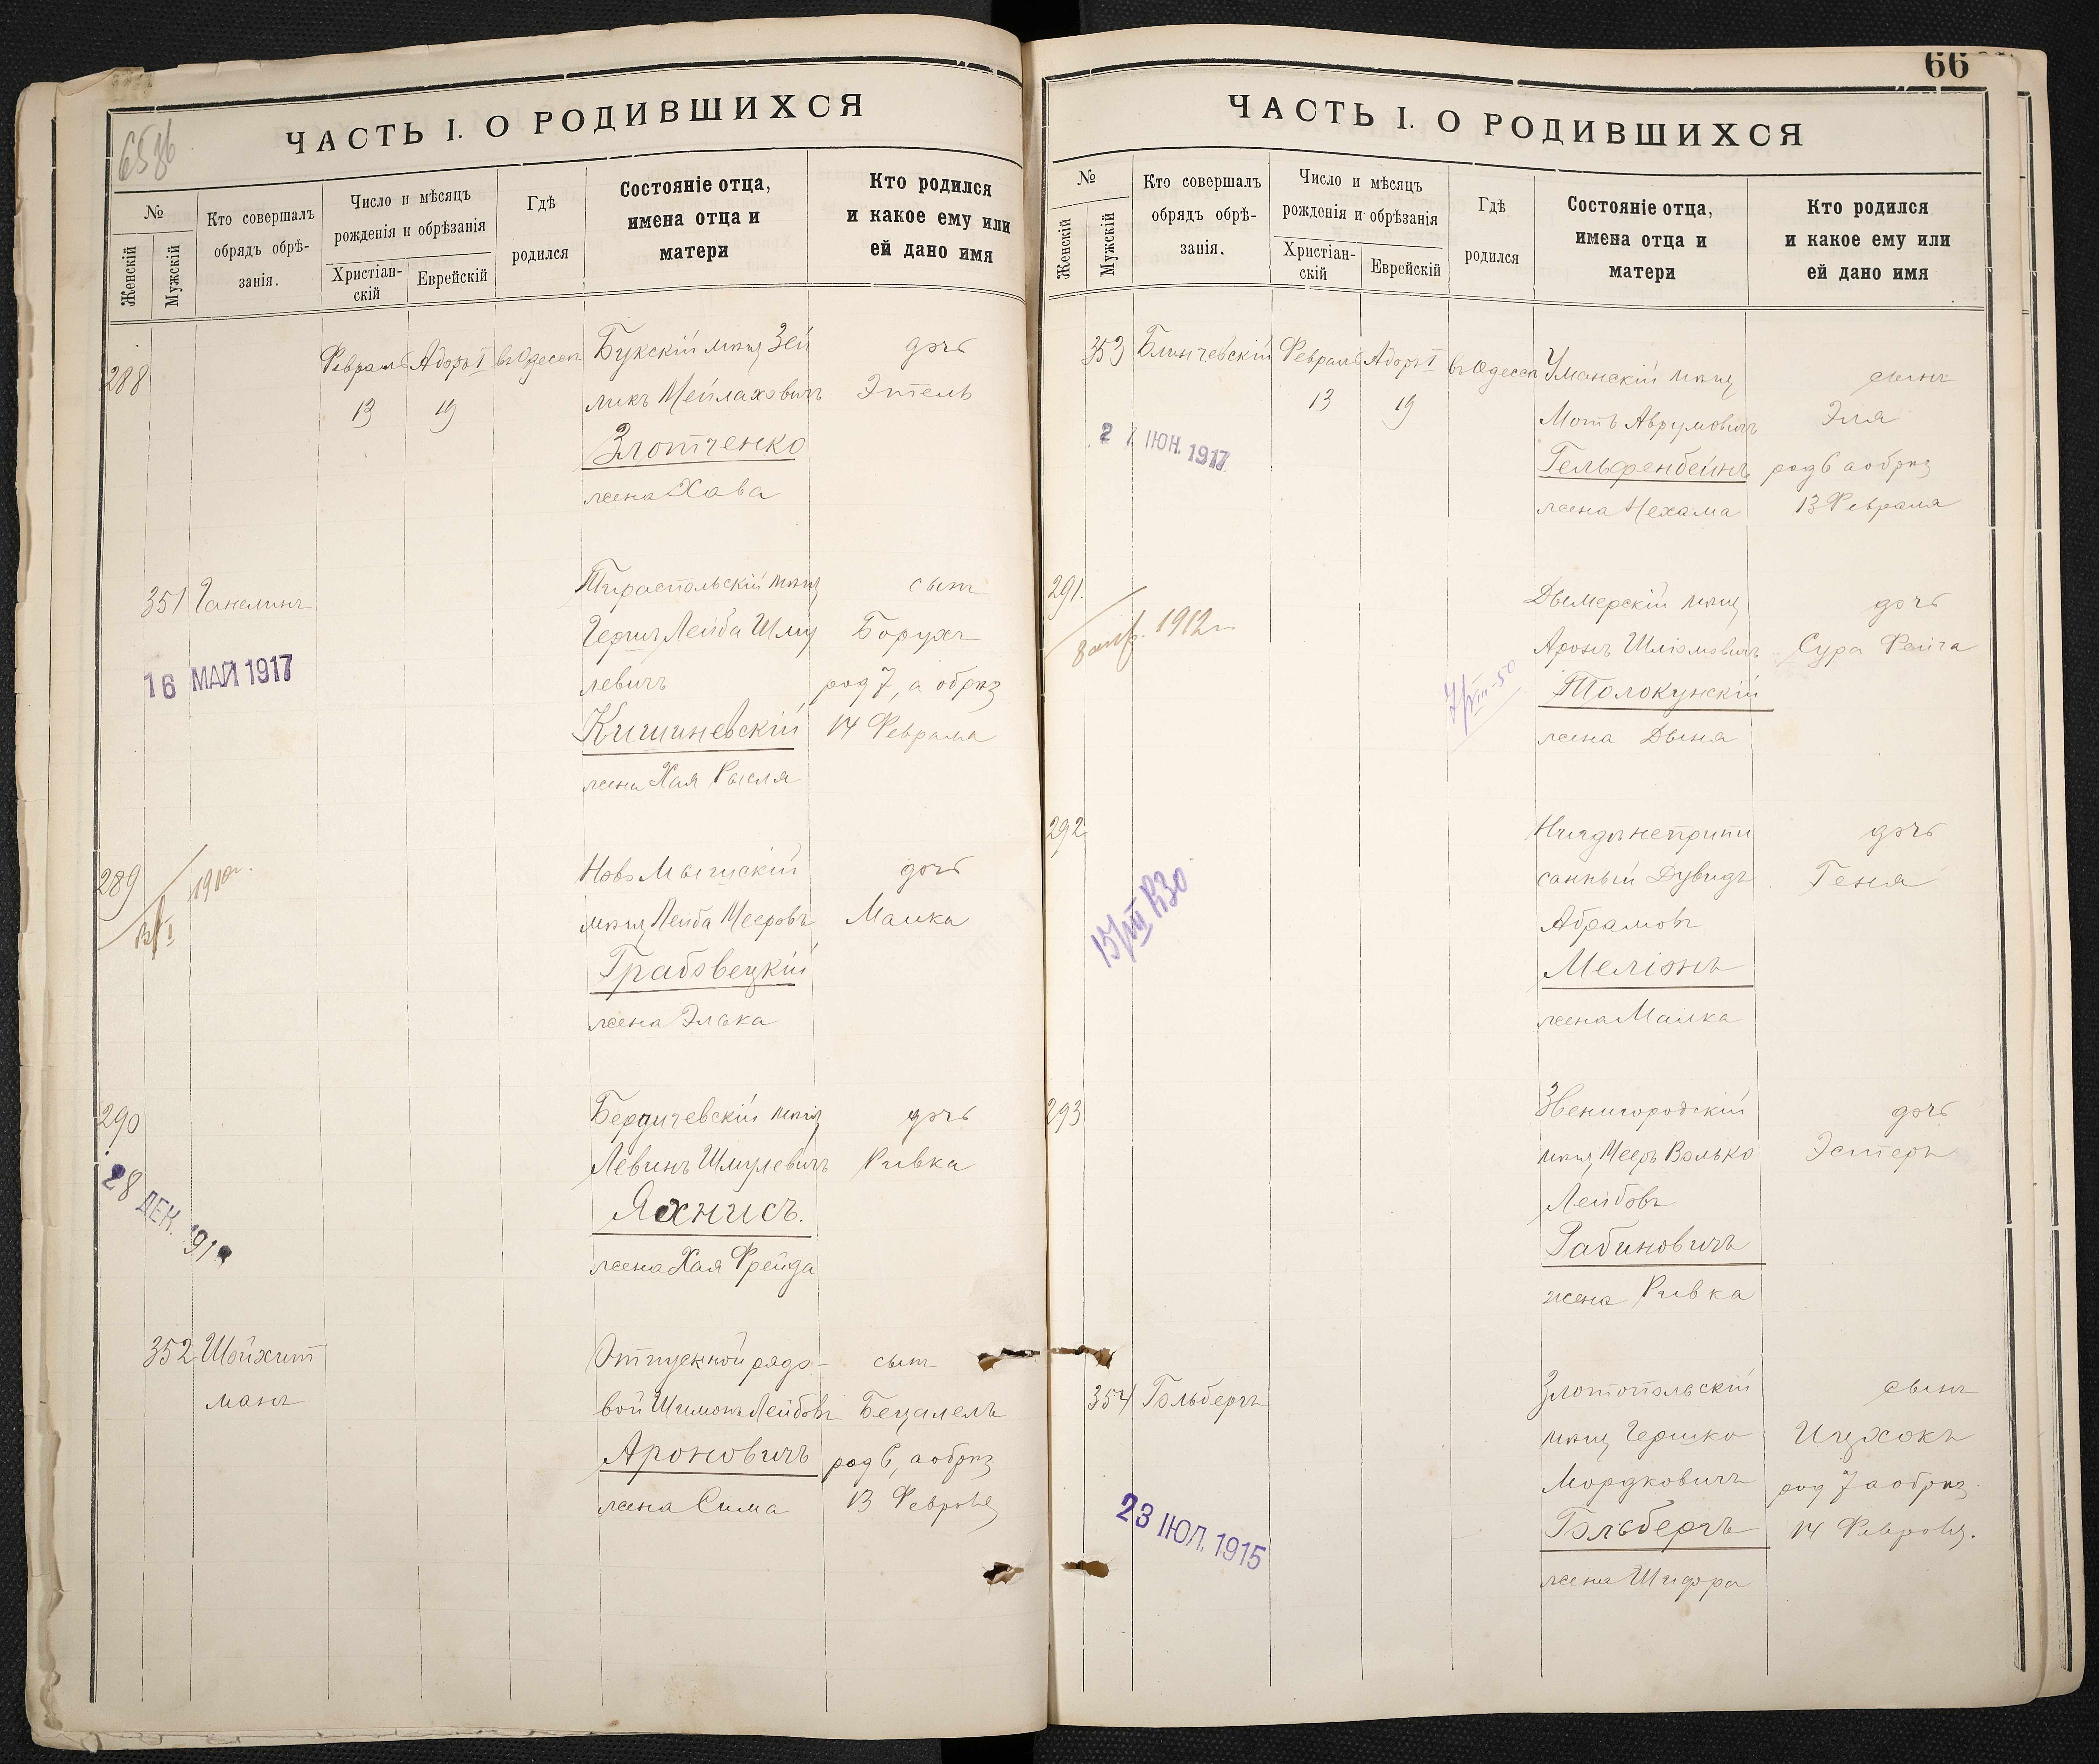 65 зб
ЧАСТЬ I. О РОДИВШИХСЯ
№
Женскій
Мужскій
Кто совершалъ
обрядъ обрѣ-
занія.
Число и мѣсяцъ
рожденія и обрѣзанія
Христіан-
скій
Еврейскій
Гдѣ
родился
Состояніе отца,
имена отца и
матери
Кто родился
и какое ему или
ей дано имя
288
Февраль
13
Адоръ I
19
въ Одессѣ
Букскій мѣщ Зей
ликъ Мейлаховичъ
Злотченко
жена Хава
дочь
Этель
351 Ганелинъ
16 МАЙ 1917
Тираспольскій мѣщ
Герш Лейба Шму
левичъ
Кишиневскій
жена Хая Рысля
сынъ
Борухъ
род 7, а обрѣз
14 Февраля
289
1910г.
Ново
мѣщ Лейба Мееровъ
Грабовецкій
жена Элька
дочь
Малка
290
28 ДЕК. 191
Бердичевскій мѣщ
Левинъ Шмулевичъ
Яхнисъ.
жена Хая Фрейда
дочь
Ривка
352 Шойхит
манъ
Отпускной рядо-
вой Шимонъ Лейбовъ
Ароновичъ
жена Сима
сынъ
Бецалель
род 6, а обрѣз
13 Февраля
66
ЧАСТЬ I. О РОДИВШИХСЯ
№
Женскій
Мужскій
Кто совершалъ
обрядъ обрѣ-
занія.
Число и мѣсяцъ
рожденія и обрѣзанія
Христіан-
скій
Еврейскій
Гдѣ
родился
Состояніе отца,
имена отца и
матери
Кто родился
и какое ему или
ей дано имя
353 Блинчевскій
27 ІЮН. 1917
Февраль
13
Адоръ I
19
въ Одессѣ
Уманскій мѣщ
Мотъ Аврумовичъ
Гельфенбейнъ
жена Нехама
сынъ
Эля
род 6 а обрѣз
13 Февраля
291.
1912г
7/VIII-50
Дымерскій мѣщ
Аронъ Шліомовичъ
Толокунскій
жена Двыня
дочь
Сура Фейга
292
15/III R30
Нигдѣ неприпи
санный Дувидъ
Абрамовъ
Меліонъ
жена Малка
дочь
Геня
293
Звенигородскій
мѣщ Мееръ Волько
Лейбовъ
Рабиновичъ
жена Ривка
дочь
Эстеръ
354 Гольбергъ
23 ІЮЛ. 1915
Златопольскій
мѣщ Гершко
Мордковичъ
Гольбергъ
жена Шифра
сынъ
Ицхокъ
род 7 а обрѣз
14 Февраля.